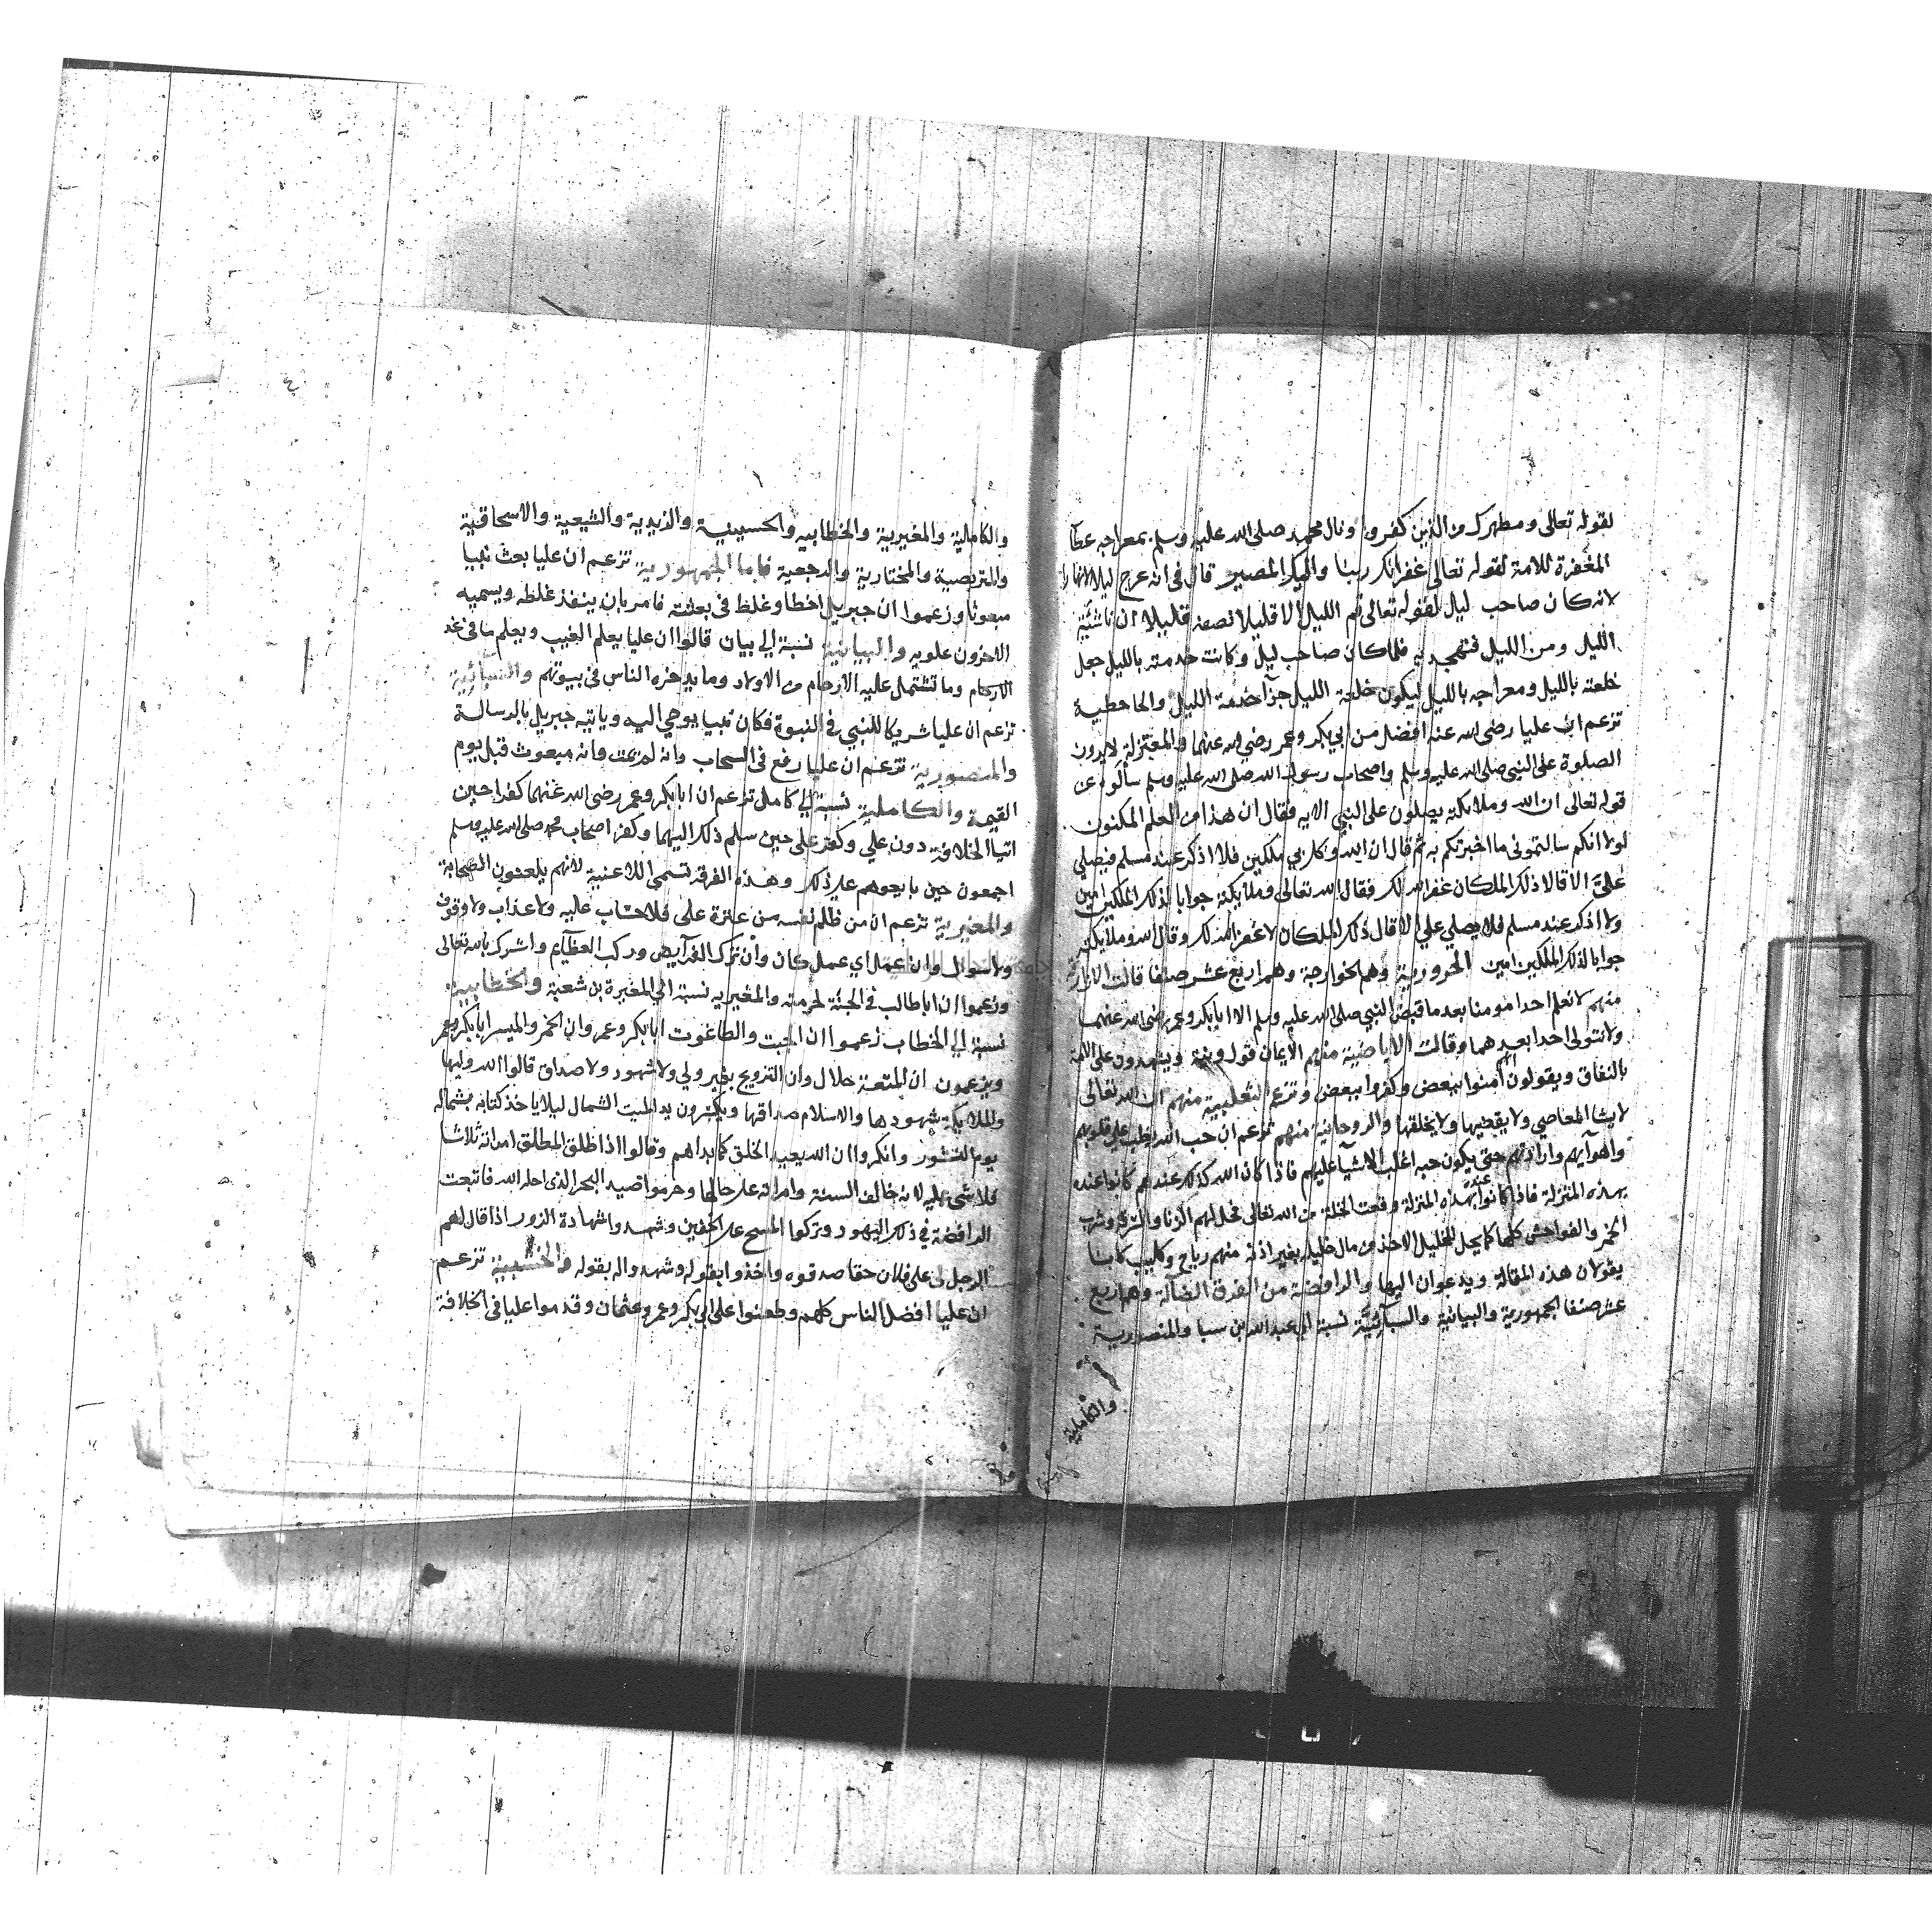 لقوله تعالى ومطهرك من الذين كفروا ونال محمد صلى الله عليه وسلم بمعراجه عطآ
المغفرة للامة لقوله تعالى غفرانك ربنا واليك المصير قال في انه عرج ليلا لا نهارا
لانه كان صاحب ليل لقوله تعالى قم الليل الا قليلا نصفه قليلا ان ناشئة
الليل ومن الليل فتهجد به فلما كان صاحب ليل وكانت خدمته بالليل جعل
خلعته بالليل ومعراجه بالليل ليكون خلعة الليل جزآ خدمة الليل والحاحطية
تزعم ان عليا رضي الله عنه افضل من ابي بكر وعمر رضي الله عنهما والمعتزلة لا يرون
الصلوة على النبي صلى الله عليه وسلم واصحاب رسول الله صلى الله عليه وسلم سألوه عن
قوله تعالى ان الله وملائكته يصلون على النبي الايه فقال ان هذا من العلم المكنون
لولا انكم سالتموني ما اخبرتكم به ثم قال ان الله وكل بي ملكين فلا اذكر عند مسلم فيصلي
عليّ الا قالا ذلك الملكان غفر الله لك فقال الله تعالى وملائكته جوابا لذلك الملكين امين
ولا اذكر عند مسلم فلا يصلي علي الا قال ذلك الملكان لا غفر الله لك وقال الله وملائكته
جوابا لذلك الملكين امين الحرورية وهم الخوارجة وهم اربع عشر صنفا قالت الازارقة
منهم لا نعلم احدا مومنا بعد ما قبض النبي صلى الله عليه وسلم الا ابا بكر وعمر رضي الله عنهما
ولا نتولى احدا بعدهما وقالت الاباضية منهم الايمان قول ونية ويشهدون على الامة
بالنفاق ويقولون آمنوا ببعض وكفروا ببعض وتزعم الثعلبية منهم ان الله تعالى
لا يشا المعاصي ولا يقضيها ولا يخلقها والروحانية منهم تزعم ان حب الله يغلب على قلوبهم
واهوآيهم وارادتهم حتى يكون حبه اغلب الاشيآ عليهم فاذا كان الله كذلك عندهم كانوا عنده
بهذه المنزلة فاذا كانوا عنده بهذه المنزلة وقعت الخلة من الله تعالى فحل لهم الزنا والسرقة وشرب
الخمر والفواحش كلها كما يحل للخليل الاخذ من مال خليله بغير اذنه منهم رباح وكليب كانا
يقولان هذه المقالة ويدعوان اليها والرافضة من الفرق الضالة وهم اربع
عشر صنفا الجمهورية والبيانية والسبآئيّة نسبة الى عبد الله بن سبا والمنصورية
والكاملية
والكاملية والمغيرية والخطابيه والحسينية والزيدية والشيعية والاسحاقية
والمتربصية والمختارية والرجعية فاما الجمهورية تزعم ان عليا بعث نبيا
مبعوثا وزعموا ان جبريل اخطا وغلظ في بعثته فامر بان ينفذ غلظه ويسميه
الاخرون علويه والبيانية نسبة الي بيان قالوا ان عليا يعلم الغيب ويعلم ما في غد
الارحام وما تشتمل عليه الارحام من الاولاد وما يدخره الناس في بيوتهم والسبائية
تزعم ان عليا شريكا للنبي في النبوة فكان نبيا يوحي اليه وياتيه جبريل بالرسالة
والمنصورية تزعم ان عليا رفع في السحاب وانه لم يمت وانه مبعوث قبل يوم
القيمة والكاملية نسبة الي كامل تزعم ان ابا بكر وعمر رضي الله عنهما كفرا حين
اتيا الخلافة دون علي وكفر علي حين سلم ذلك اليهما وكفر اصحاب محمد صلى الله عليه وسلم
اجمعون حين بايعوهم على ذلك وهذه الفرقة تسمى اللاعنية لانهم يلعنون الصحابة
والمغيرية تزعم ان من ظلم نفسه من عترة علي فلا حساب عليه ولا عذاب ولا وقوف
ولا سوال وان عمل اي عمل كان وان ترك الفرآيض وركب العظآيم واشرك بالله تعالى
وزعموا ان ابا طالب في الجنة لحرمته والمغيريه نسبة الي المغيرة بن شعبة والخطابية
نسبة الي الخطاب زعموا ان الجبت والطاغوت ابا بكر وعمر وان الخمر والميسر ابا بكر وعمر
ويزعمون ان المتعة حلال وان التزويج بغير ولي ولا شهود ولا صداق قالوا الله وليها
والملائكة شهودها والاسلام صداقها ويكسرون يد الميت الشمال ليلا ياخذ كتابه بشماله
يوم النشور وانكروا ان الله يعيد الخلق كما بداهم وقالوا اذا طلق المطلق امراته ثلاثا
فلا شي عليه لانه خالف السنة وامراته على حالها وحرموا صيد البحر الذي احله الله فاتبعت
الرافضة في ذلك اليهود وتركوا المسح على الخفين وشهدوا شهادة الزور اذا قال لهم
الرجل لي على فلان حقا صدقوه واخذوا بقوله وشهدوا له بقوله والخشبية تزعم
ان عليا افضل الناس كلهم وطعنوا على ابي بكر وعمر وعثمان وقدموا عليا في الخلافة